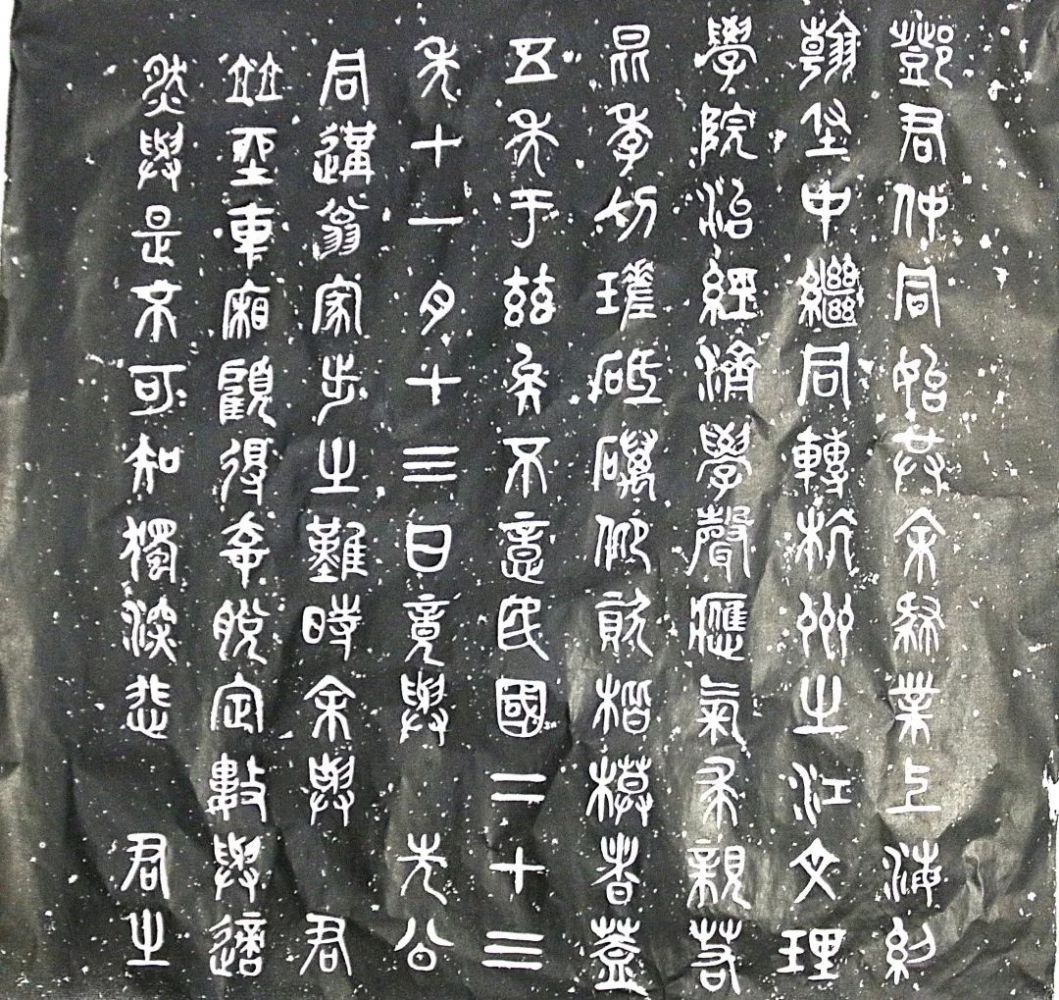 鄧君仲同始共余肄業上海約
翰中繼同轉杭州之江文理
學院治經濟學聲應氣求親若
昆季切瑳砥礪就楷模者蓋
五年于茲矣不意民國二十三
年十一月十三日竟與 先公
同遘翁家步之難時余與 君
並坐車廂顧得幸脫定數與適
然與是不可知獨深悲 君之